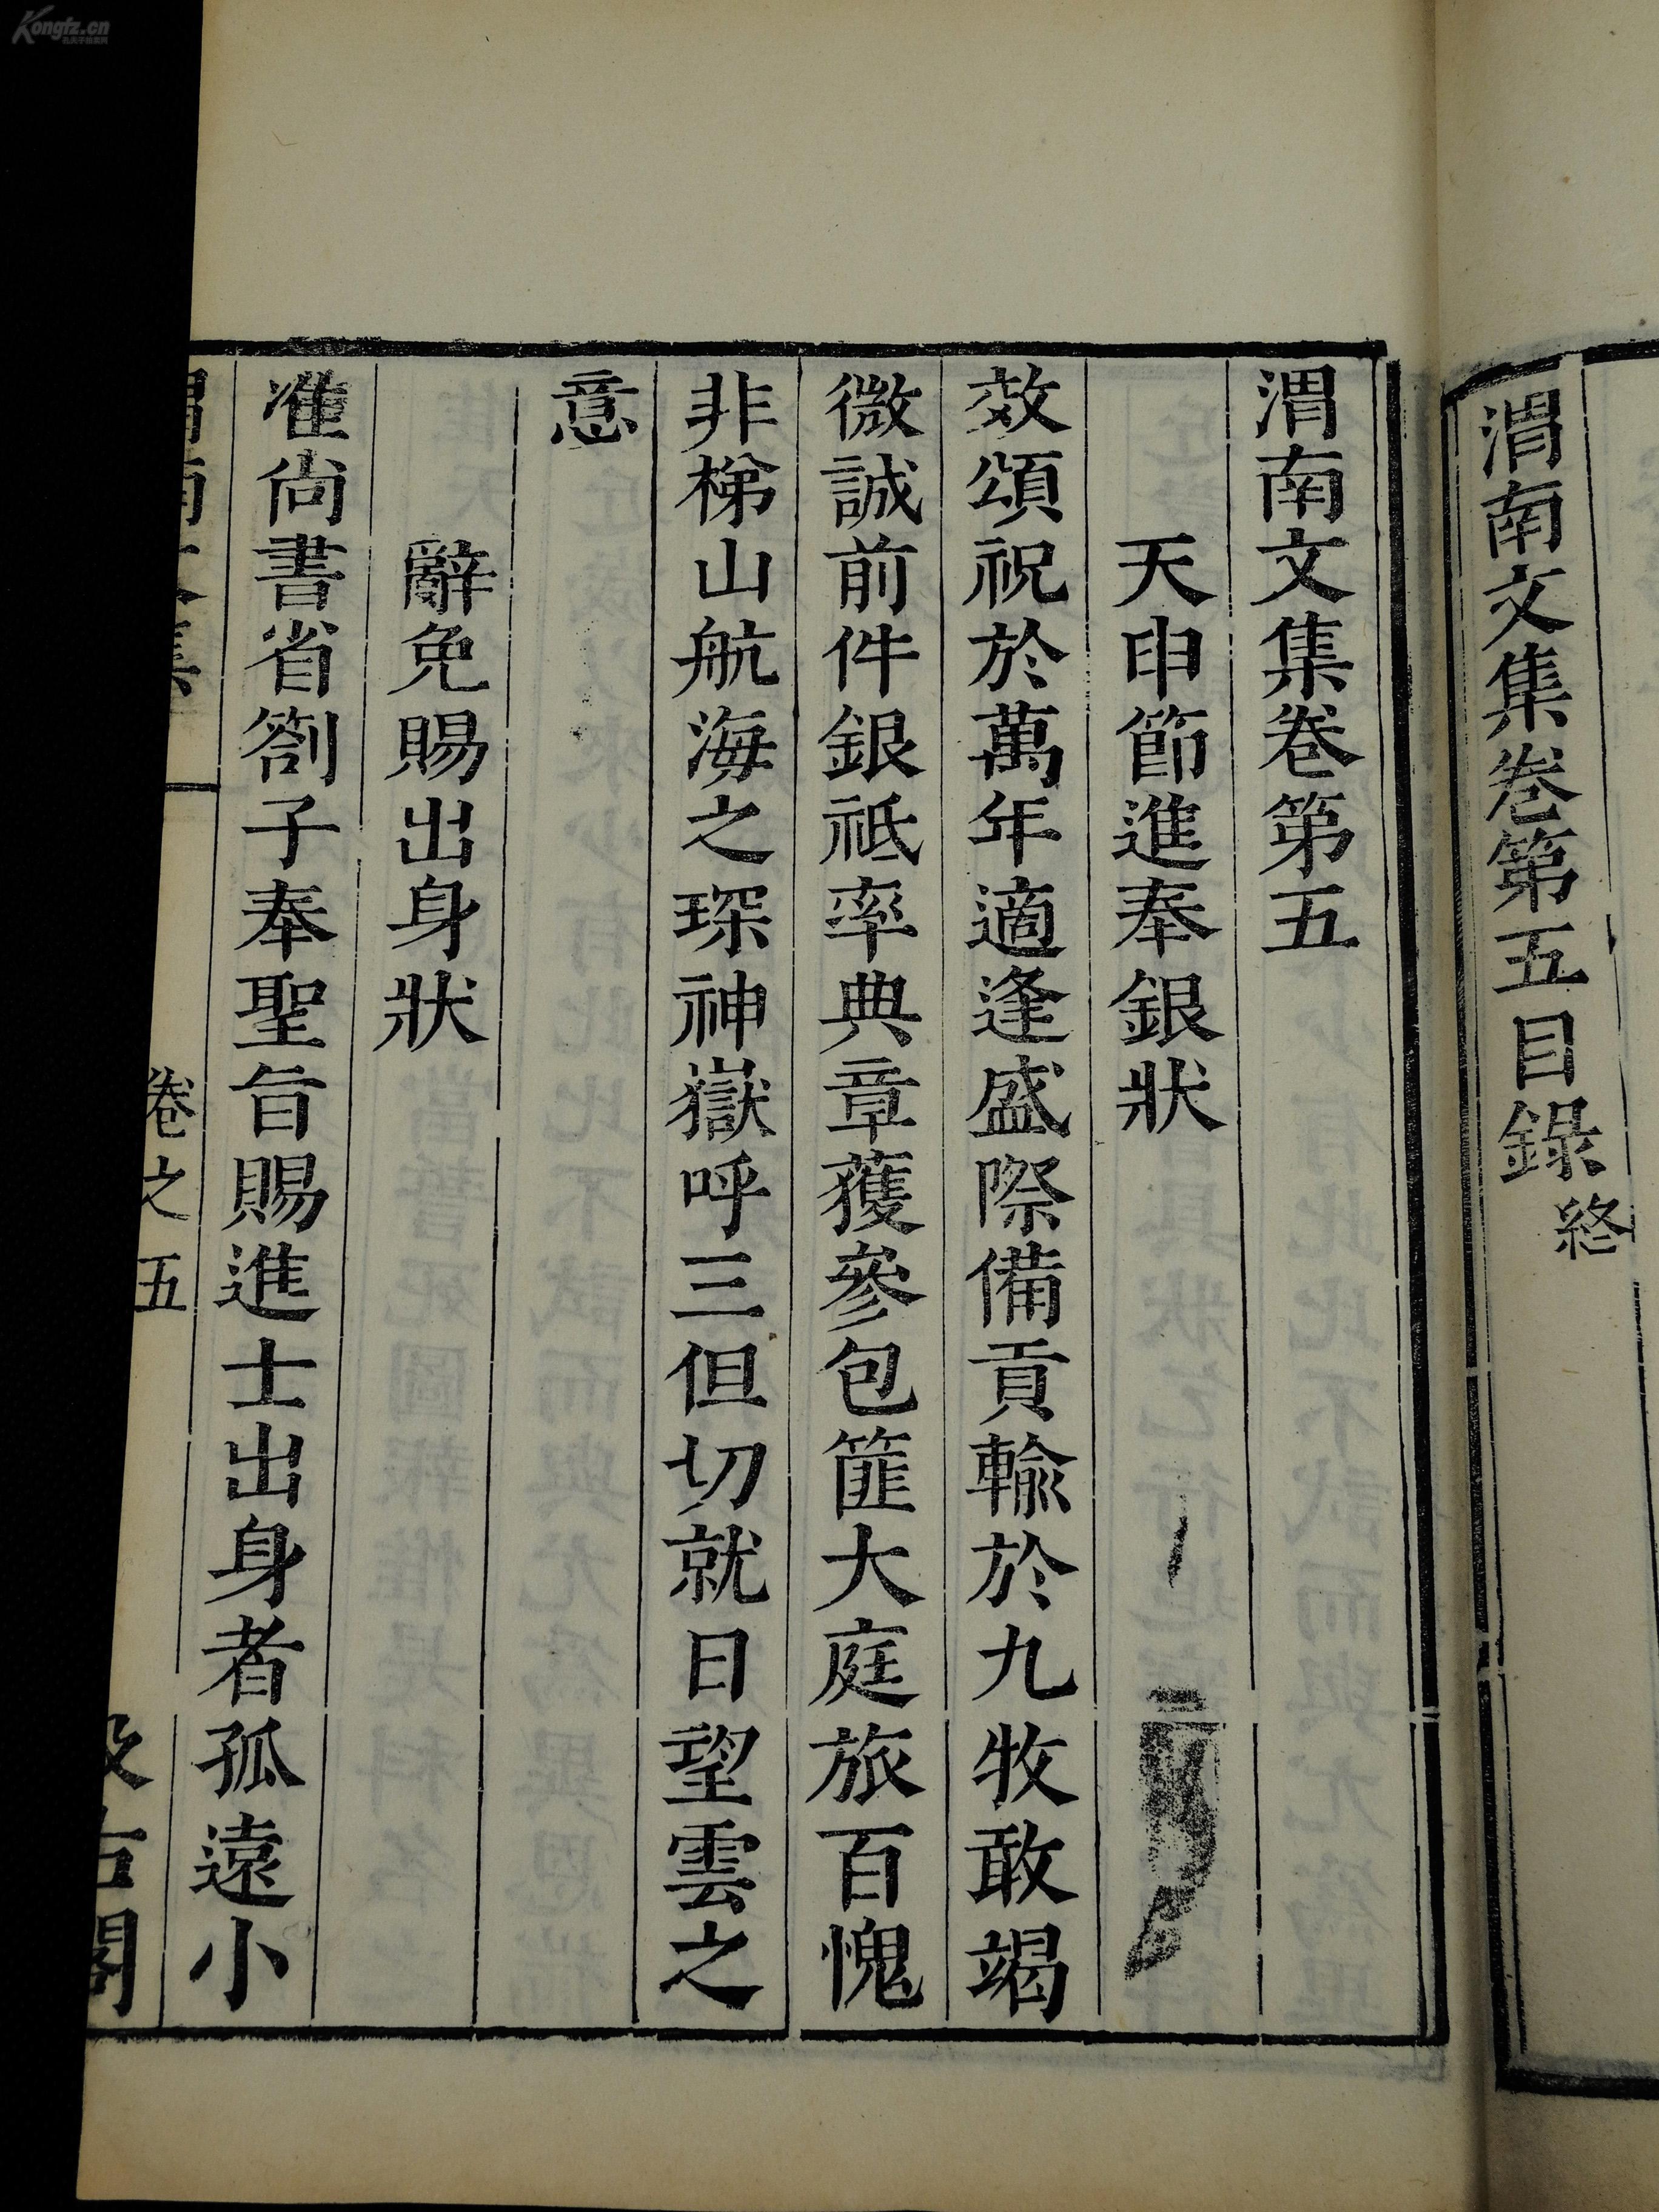 渭南文集卷第五目錄終
渭南文集卷第五
天申節進奉銀狀
效頌祝於萬年適逢盛際備貢輸於九牧敢竭
微誠前件銀祗率典章獲參包篚大庭旅百愧
非梯山航海之琛神嶽呼三但切就日望雲之
意
辭免賜出身狀
准尚書省劄子奉聖旨賜進士出身者孤遠小
渭南文集
卷之五
汲古閣
Kongfz.cn